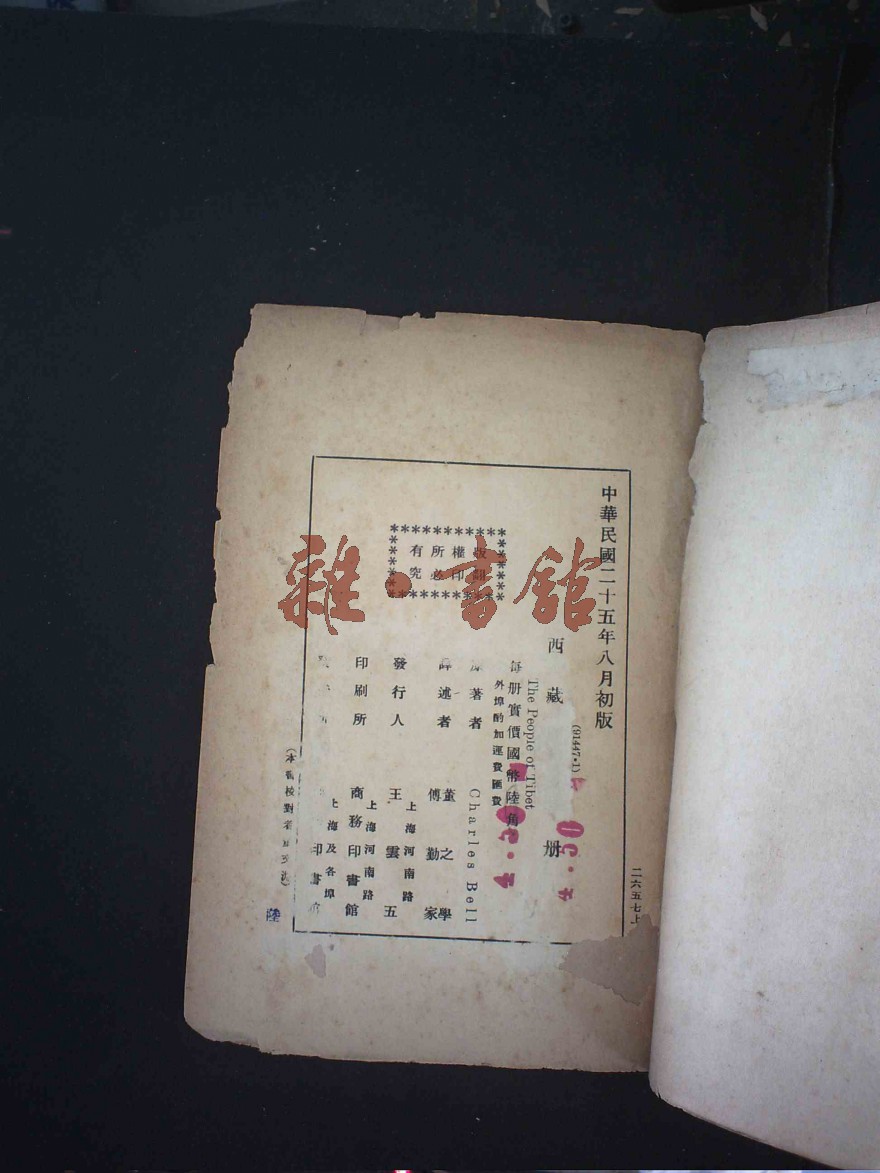 中華民國二十五年八月初版
二六五七上
(91447·1)
西藏 册
The People of Tibet
每册實價國幣陸角
外埠酌加運費匯費
4.50
版權所有
翻印必究
著者 Charles Bell
譯述者 董之學
傅勤家
發行人 王雲五
上海河南路
印刷所 商務印書館
上海河南路
上海及各埠
印書館
(本書校對者
陸
雜·書館